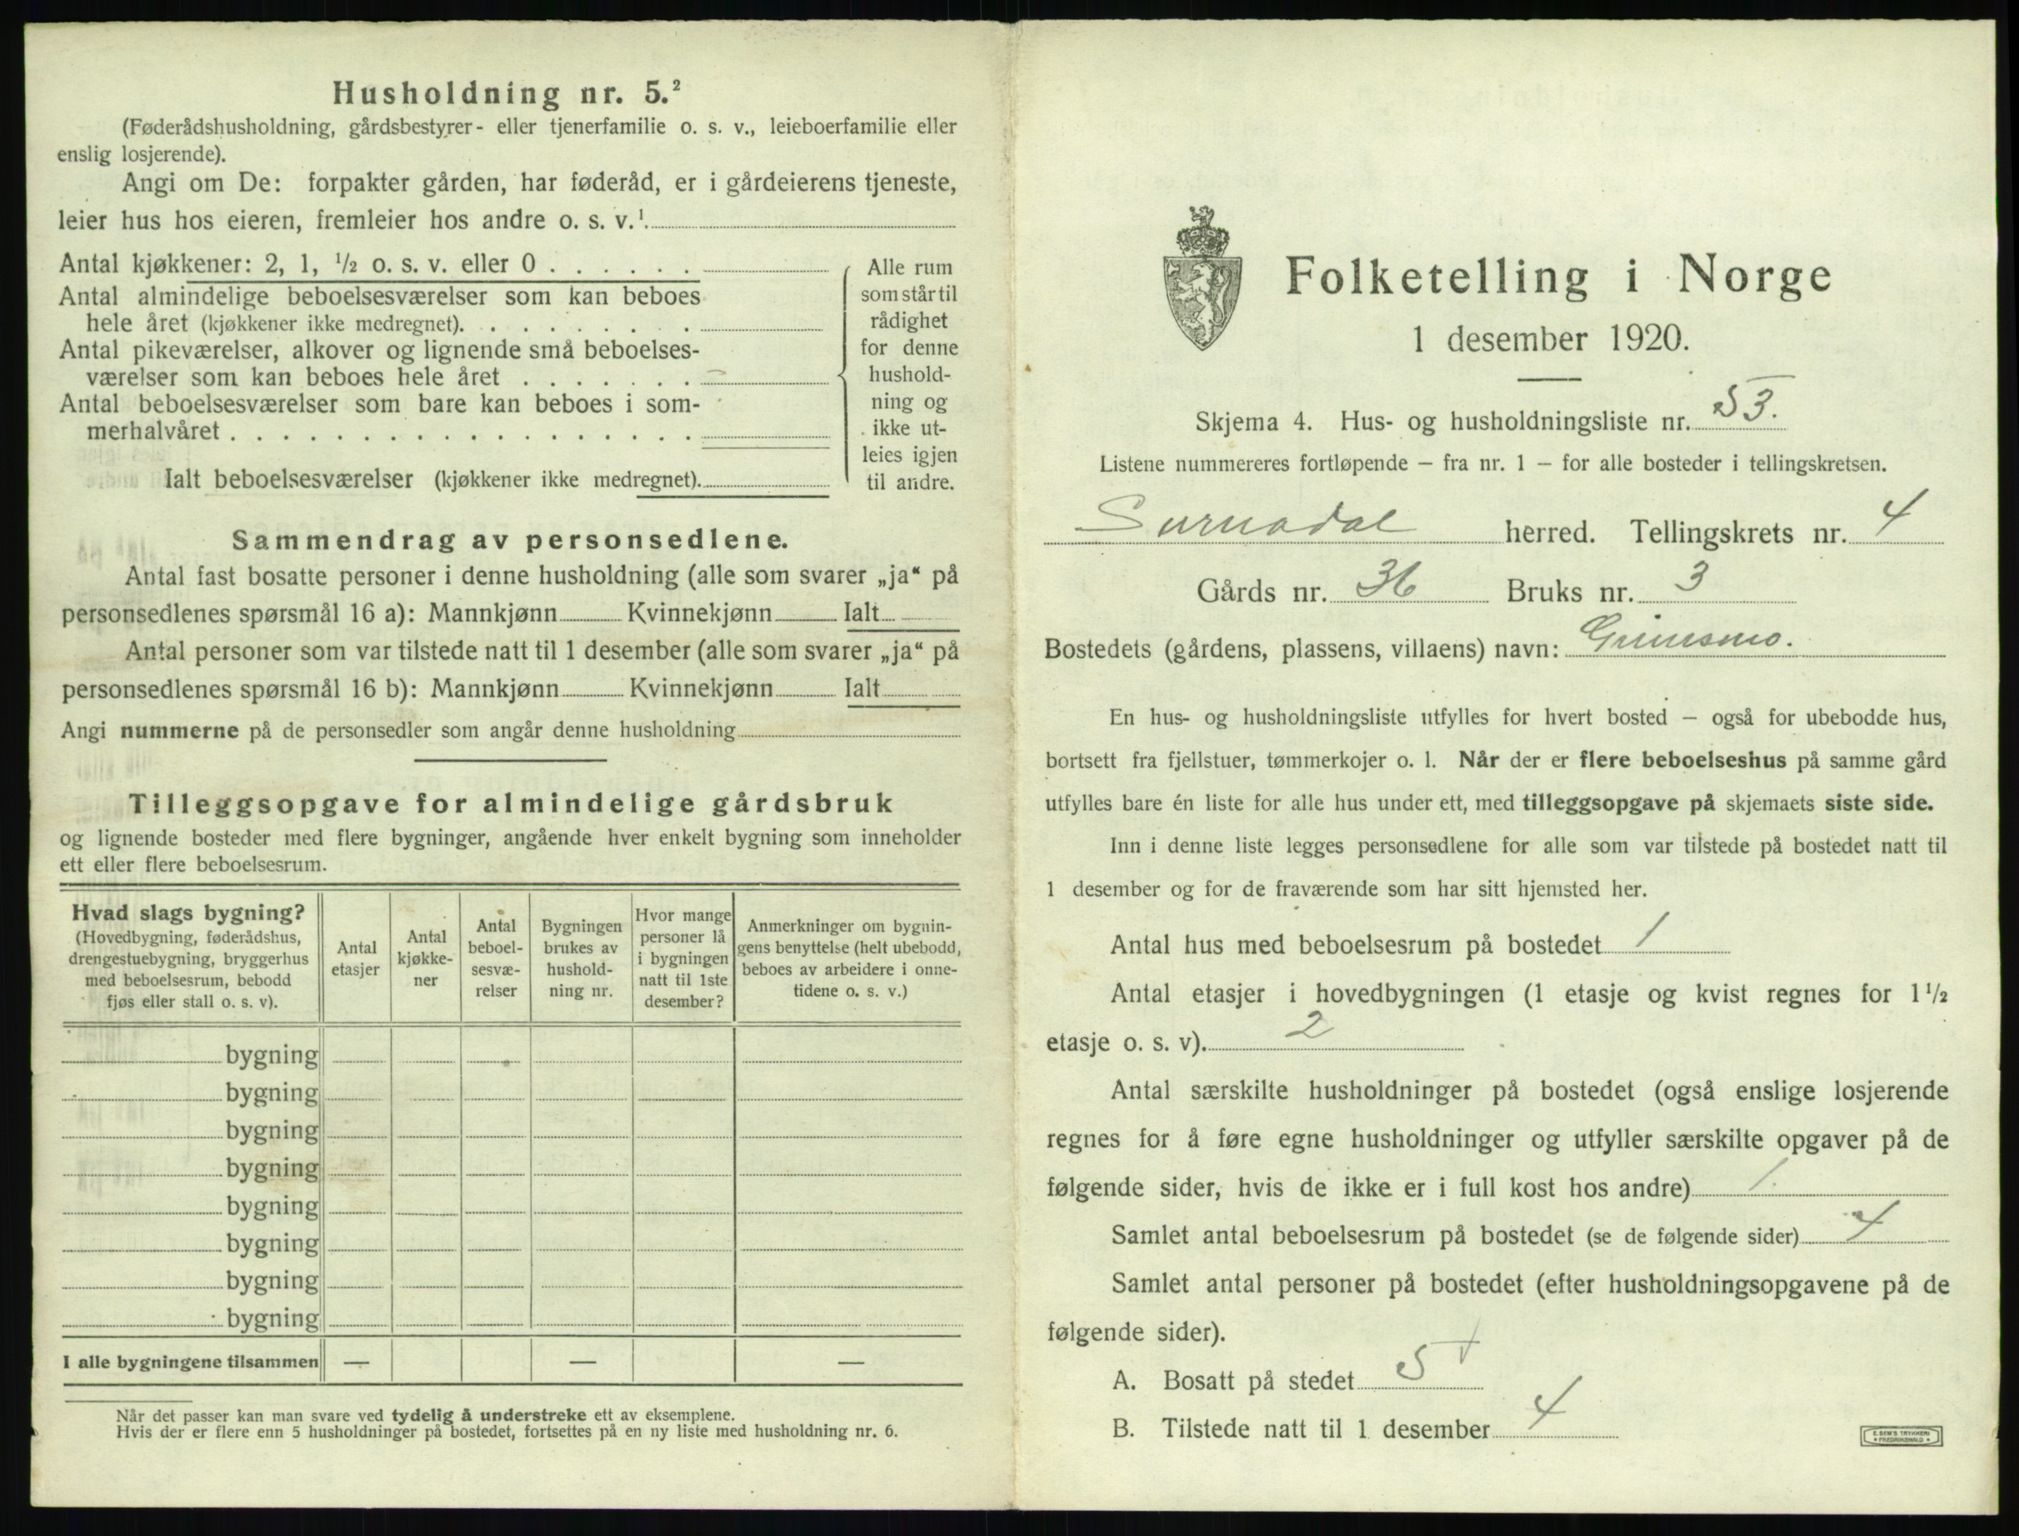 Husholdning nr. 5.²
(Føderådshusholdning, gårdsbestyrer- eller tjenerfamilie o. s. v., leieboerfamilie eller
enslig losjerende).
Angi om De: forpakter gården, har føderåd, er i gårdeierens tjeneste,
leier hus hos eieren, fremleier hos andre o. s. v.¹
Antal kjøkkener: 2, 1, ½ o. s. v. eller 0 . . . . . .
Antal almindelige beboelsesværelser som kan beboes
hele året (kjøkkener ikke medregnet). . . . . . . . .
Antal pikeværelser, alkover og lignende små beboelses-
værelser som kan beboes hele året . . . . . . .
Antal beboelsesværelser som bare kan beboes i som-
merhalvåret . . . . . . . . . . . . . . . . . .
Ialt beboelsesværelser (kjøkkener ikke medregnet).
Alle rum
som står til
rådighet
for denne
hushold-
ning og
ikke ut-
leies igjen
til andre.
Sammendrag av personsedlene.
Antal fast bosatte personer i denne husholdning (alle som svarer „ja“ på
personsedlenes spørsmål 16 a): Mannkjønn Kvinnekjønn Ialt
Antal personer som var tilstede natt til 1 desember (alle som svarer „ja“ på
personsedlenes spørsmål 16 b): Mannkjønn Kvinnekjønn Ialt
Angi nummerne på de personsedler som angår denne husholdning
Tilleggsopgave for almindelige gårdsbruk
og lignende bosteder med flere bygninger, angående hver enkelt bygning som inneholder
ett eller flere beboelsesrum.
Hvad slags bygning?
(Hovedbygning, føderådshus,
drengestuebygning, bryggerhus
med beboelsesrum, bebodd
fjøs eller stall o. s. v).
Antal
etasjer
Antal
kjøkke-
ner
Antal
beboel-
sesvæ-
relser
Bygningen
brukes av
hushold-
ning nr.
Hvor mange
personer lå
i bygningen
natt til 1ste
desember?
Anmerkninger om bygnin-
gens benyttelse (helt ubebodd,
beboes av arbeidere i onne-
tidene o. s. v.)
bygning
bygning
bygning
bygning
bygning
bygning
bygning
bygning
I alle bygningene tilsammen — — —
Når det passer kan man svare ved tydelig å understreke ett av eksemplene.
Hvis der er flere enn 5 husholdninger på bostedet, fortsettes på en ny liste med husholdning nr. 6.
Folketelling i Norge
1 desember 1920.
Skjema 4. Hus- og husholdningsliste nr. 53.
Listene nummereres fortløpende – fra nr. 1 – for alle bosteder i tellingskretsen.
Surnadal herred. Tellingskrets nr. 4
Gårds nr. 36 Bruks nr. 3
Bostedets (gårdens, plassens, villaens) navn: Grimsmo.
En hus- og husholdningsliste utfylles for hvert bosted – også for ubebodde hus,
bortsett fra fjellstuer, tømmerkojer o. l. Når der er flere beboelseshus på samme gård
utfylles bare én liste for alle hus under ett, med tilleggsopgave på skjemaets siste side.
Inn i denne liste legges personsedlene for alle som var tilstede på bostedet natt til
1 desember og for de fraværende som har sitt hjemsted her.
Antal hus med beboelsesrum på bostedet 1
Antal etasjer i hovedbygningen (1 etasje og kvist regnes for 1½
etasje o. s. v). 2
Antal særskilte husholdninger på bostedet (også enslige losjerende
regnes for å føre egne husholdninger og utfyller særskilte opgaver på de
følgende sider, hvis de ikke er i full kost hos andre) 1.
Samlet antal beboelsesrum på bostedet (se de følgende sider) 4
Samlet antal personer på bostedet (efter husholdningsopgavene på de
følgende sider).
A. Bosatt på stedet 5 +
B. Tilstede natt til 1 desember 4
E. SEM'S TRYKKERI
FREDRIKSHALD